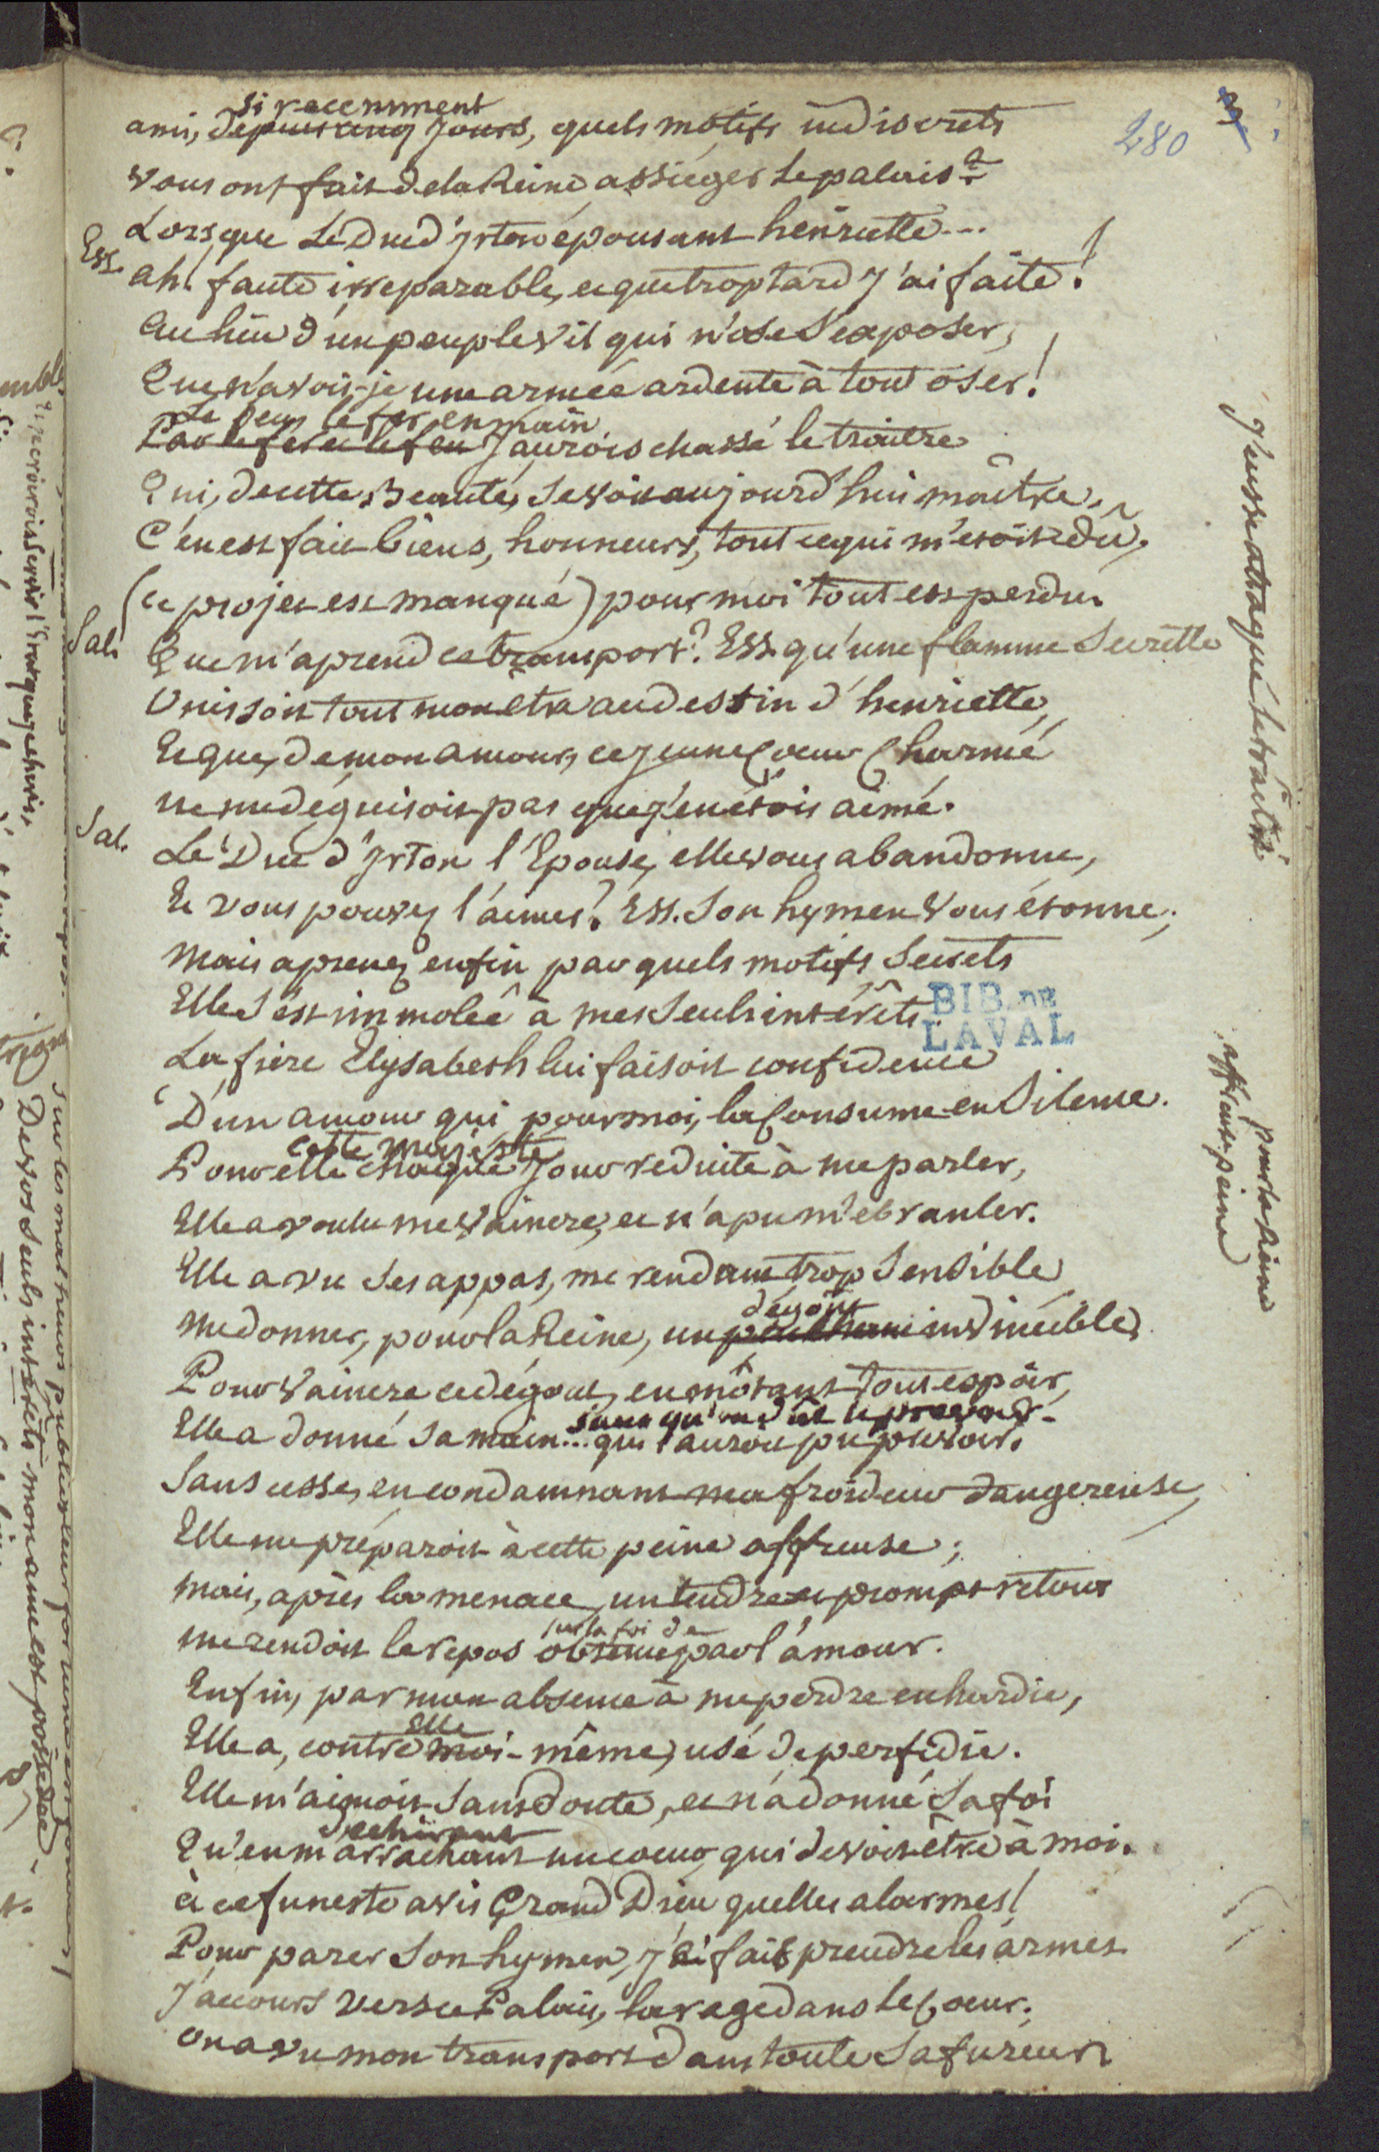 280
si recemment
ami, depuis cinq jours, quels motifs indiscrets
vous ont fait de la Reine assiéger le palais?
Lorsque le Duc d'Irton épousant henriette...
Ess. ah! faute irreparable, et que trop tard j'ai faite!
Au lieu d'un peuple vil qui n'ose s'exposer,
Que n'avois-je une armée ardente à tout oser!
le fer en main
Par le fer et le feu j'aurois chassé le traitre
Qui, de cette Beauté, se voit aujourd'hui maître.
C'en est fait biens, honneurs, tout ce qui m'étoit dû,
(ce projet est manqué) pour moi tout est perdu.
Sal. Que m'aprend ce transport? Ess. qu'une flamme secrette
Unissoit tout mon etre au destin d'henriette,
Et que, de mon amour, ce jeune Coeur Charmé
ne me déguisoit pas que j'en étois aimé.
Sal. Le Duc d'Irton l'Epouse, elle vous abandonne,
Et vous pouvez l'aimer? Ess. Son hymen vous étonne;
Mais aprenez enfin par quels motifs secrets
Elle s'est immolée à mes seuls intérêts.
BIB. DE
LAVAL
La fiere Elysabeth lui faisoit confidence
D'un amour qui, pour moi, la Consume en silence.
cette majesté
Pour elle chaque jour reduite à me parler,
Elle a voulu me vaincre, et n'a pu m'ebranler.
Elle a vu ses appas, me rendant trop sensible
dégoût
Me donner, pour la Reine, un invincible
Pour vaincre ce dégout, en m'ôtant tout espoir,
sans qu'on dût le prevoir
Elle a donné sa main... qui l'auroit pu prevoir.
Sans cesse, en condamnant ma froideur dangereuse,
Elle me préparoit à cette peine affreuse;
Mais, après la menace, un tendre et prompt retour
sur la foi de
me rendoit le repos obtenu par l'amour.
Enfin, par mon absence à me perdre enhardie,
Elle
Elle a, contre moi-même, usé de perfidie.
Elle m'aimoit sans doute, et n'a donné sa foi
dechirant
Qu'en m'arrachant un coeur qui devoit être à moi.
à ce funeste avis Grand Dieu quelles alarmes!
Pour parer son hymen, j'ai fait prendre les armes
J'accours vers ce Palais, la rage dans le Coeur;
On a vu mon transport dans toute sa fureur
J'eusse attaqué le traître
pour la Reine
affreuse peine
De vos seuls interets mon ame est possedée